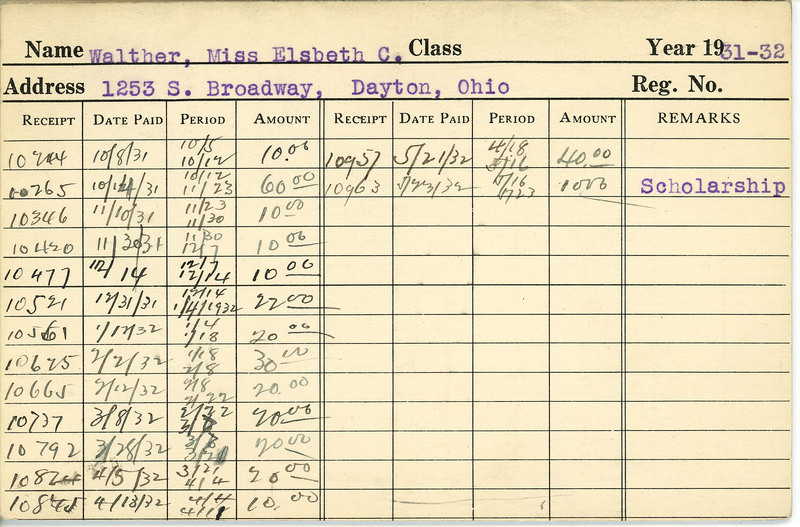 Name Walther, Miss Elsbeth C. Class Year 1931-32
Address 1253 S. Broadway, Dayton, Ohio Reg. No.
RECEIPT DATE PAID PERIOD AMOUNT RECEIPT DATE PAID PERIOD AMOUNT REMARKS
10/5 4/18
10244 10/8/31 10/12 10.00 10957 5/21/32 5/16 40.00
10/12 5/16
10265 10/14/31 11/23 60.00 10963 5/23/32 5/23 10.00 Scholarship
11/23
10346 11/10/31 11/30 10.00
11/30
10420 11/30/31 12/7 10.00
12/7
10477 12/14 12/14 10.00
12/14
10521 12/31/31 1/4/1932
1/4
10561 1/18 20.00
1/18
10675 2/2/32 2/8 30.00
2/8
10665 2/12/32 2/22 20.00
2/22
10737 3/8/32 3/8 20.00
3/8
10792 3/28/32 20.00
3/21
4/5/32 4/4 20.00
4/4
10845 4/13/32 10.00